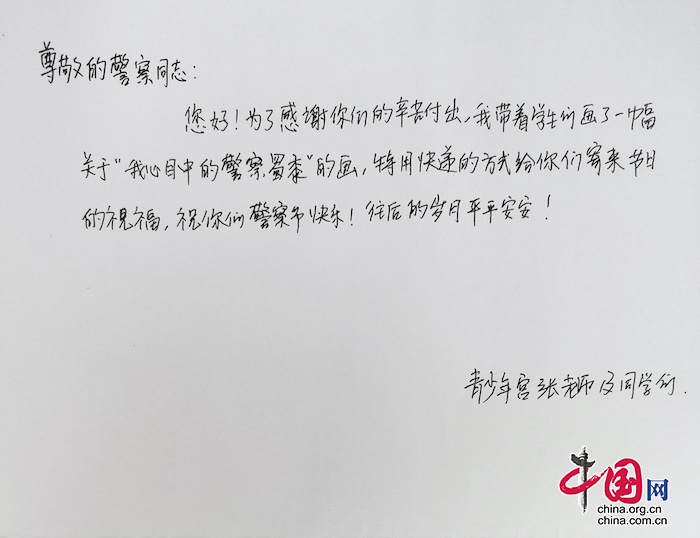 尊敬的警察同志：
您好！为了感谢你们的辛苦付出，我带着学生们画了一幅
关于“我心目中的警察蜀黍”的画，特用快递的方式给你们寄来节日
的祝福，祝你们警察节快乐！往后的岁月平平安安！
青少年宫张老师及同学们.
中国网
china.org.cn
china.com.cn